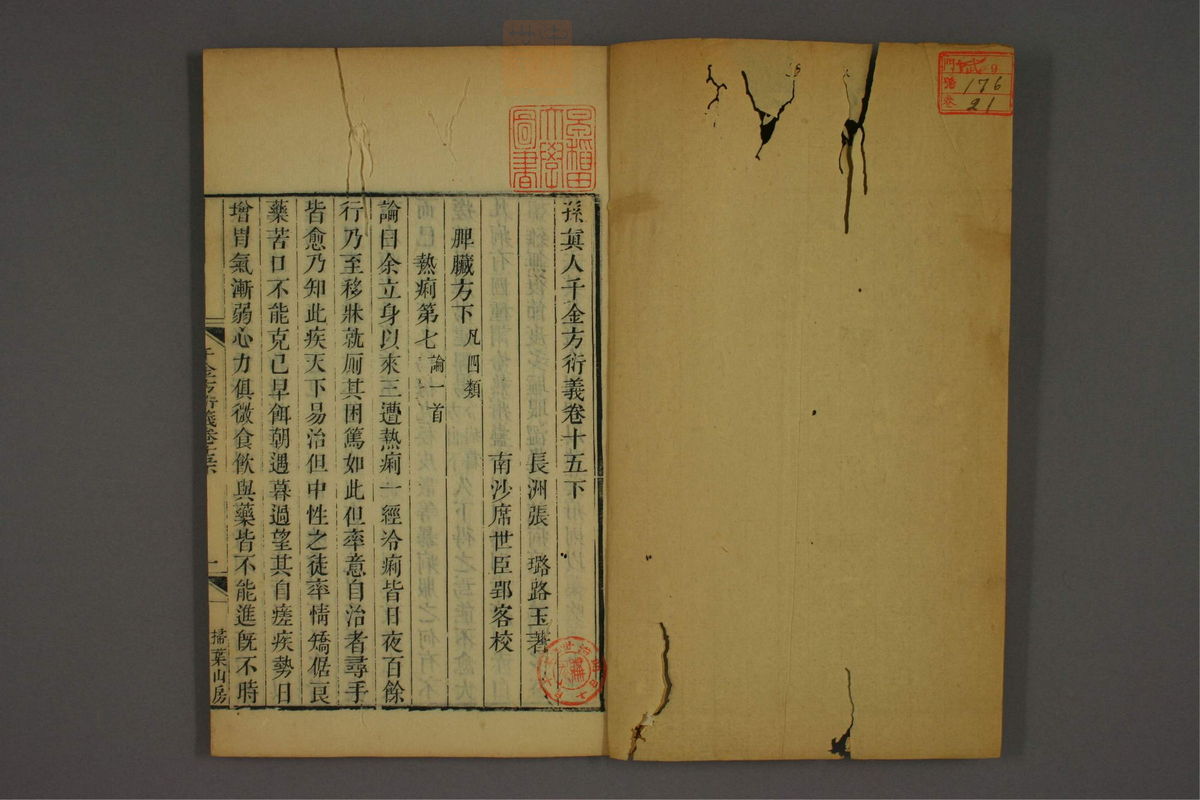 孫真人千金方衍義卷十五下
長洲張　璐路玉著
南沙席世臣郢客校
脾臟方下凡四類
熱痢第七論一首
論曰余立身以來三遭熱痢一經冷痢皆日夜百餘
行乃至移牀就厠其困篤如此但率意自治者尋手
皆愈乃知此疾天下易治但中性之徒率情矯倨良
藥苦口不能克己早餌朝遇暮過望其自瘥疾勢日
增胃氣漸弱心力俱微食飲與藥皆不能進旣不時
掃葉山房
早稻田
大學
圖書
門
號 176
卷 21